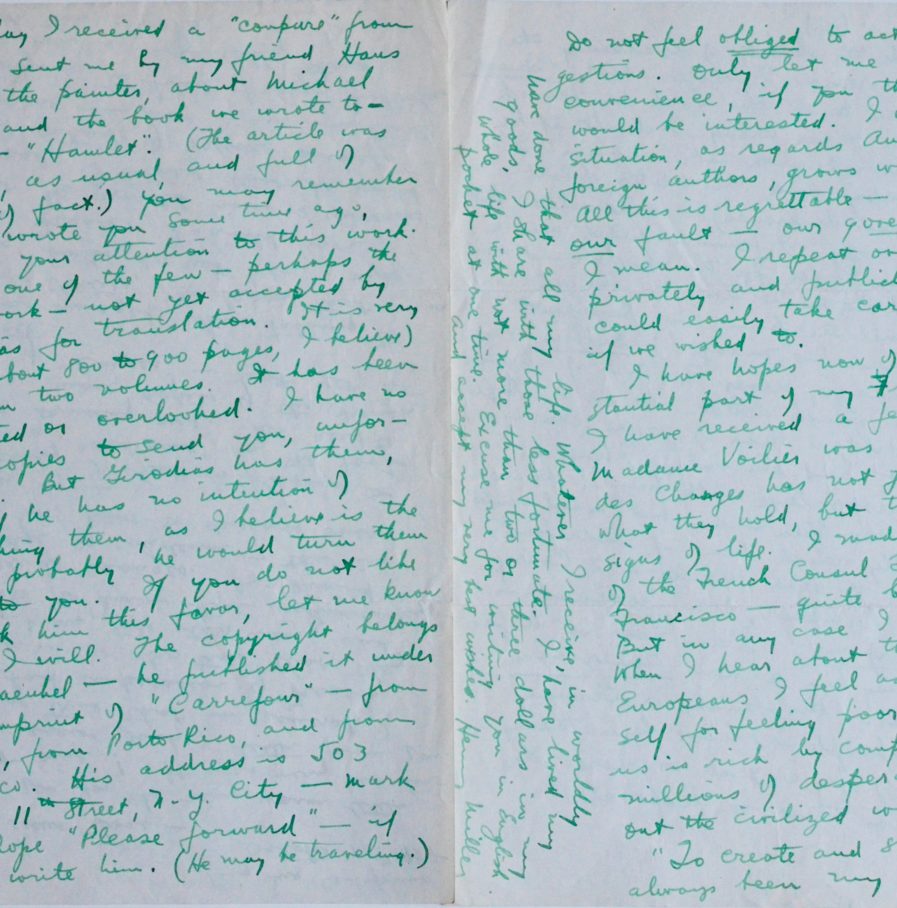 ay I received a "coupure" from
sent me by my friend Hans
the painter, about Michael
and the book we wrote to-
- "Hamlet". (The article was
, as usual, and full of
of fact.) You may remember
wrote you some time ago,
your attention to this work.
one of the few — perhaps the
ork — not yet accepted by
as for translation. It is very
bout 800 to 900 pages, I believe)
n two volumes. It has been
ted or overlooked. I have no
copies to send you, unfor-
. But Girodias has them,
f he has no intention of
hing them, as I believe is the
probably he would turn them
to you. If you do not like
k him this favor, let me know
I will. The copyright belongs
aenkel — he published it under
mprint of "Carrefour" — from
, from Porto Rico, and from
co. His address is 503
11th Street, N.Y. City — mark
lope "Please forward" — if
write him. (He may be traveling.)
Do not feel obliged to act
gestions. Only let me
convenience, if you th
would be interested. I
situation, as regards Am
foreign authors, grows w
All this is regrettable —
our fault — our gove
I mean. I repeat on
privately and public
could easily take car
if we wished to.
I have hopes now of
stantial part of my
I have received a fe
Madame Voilier was
des Changes has not y
what they hold, but t
signs of life. I mad
of the French Consul
Francisco — quite b
But in any case I
When I hear about th
Europeans I feel as
self for feeling poor
us is rich by comp
millions of desper
out the civilized w
"To create and s
always been my
have done that all my life. Whatever I receive, in worldly
goods, I share with those less fortunate. I have lived my
whole life with not more than two or three dollars in my
pocket at one time. Excuse me for writing you in English
and accept my very best wishes. Henry Miller